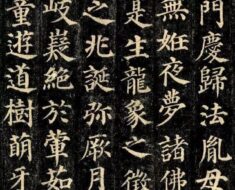 門慶歸法胤母
無姙夜夢諸佛
是生龍象之徵
之兆誕彌厥月
岐嶷絕於葷茹
童遊道樹萌牙